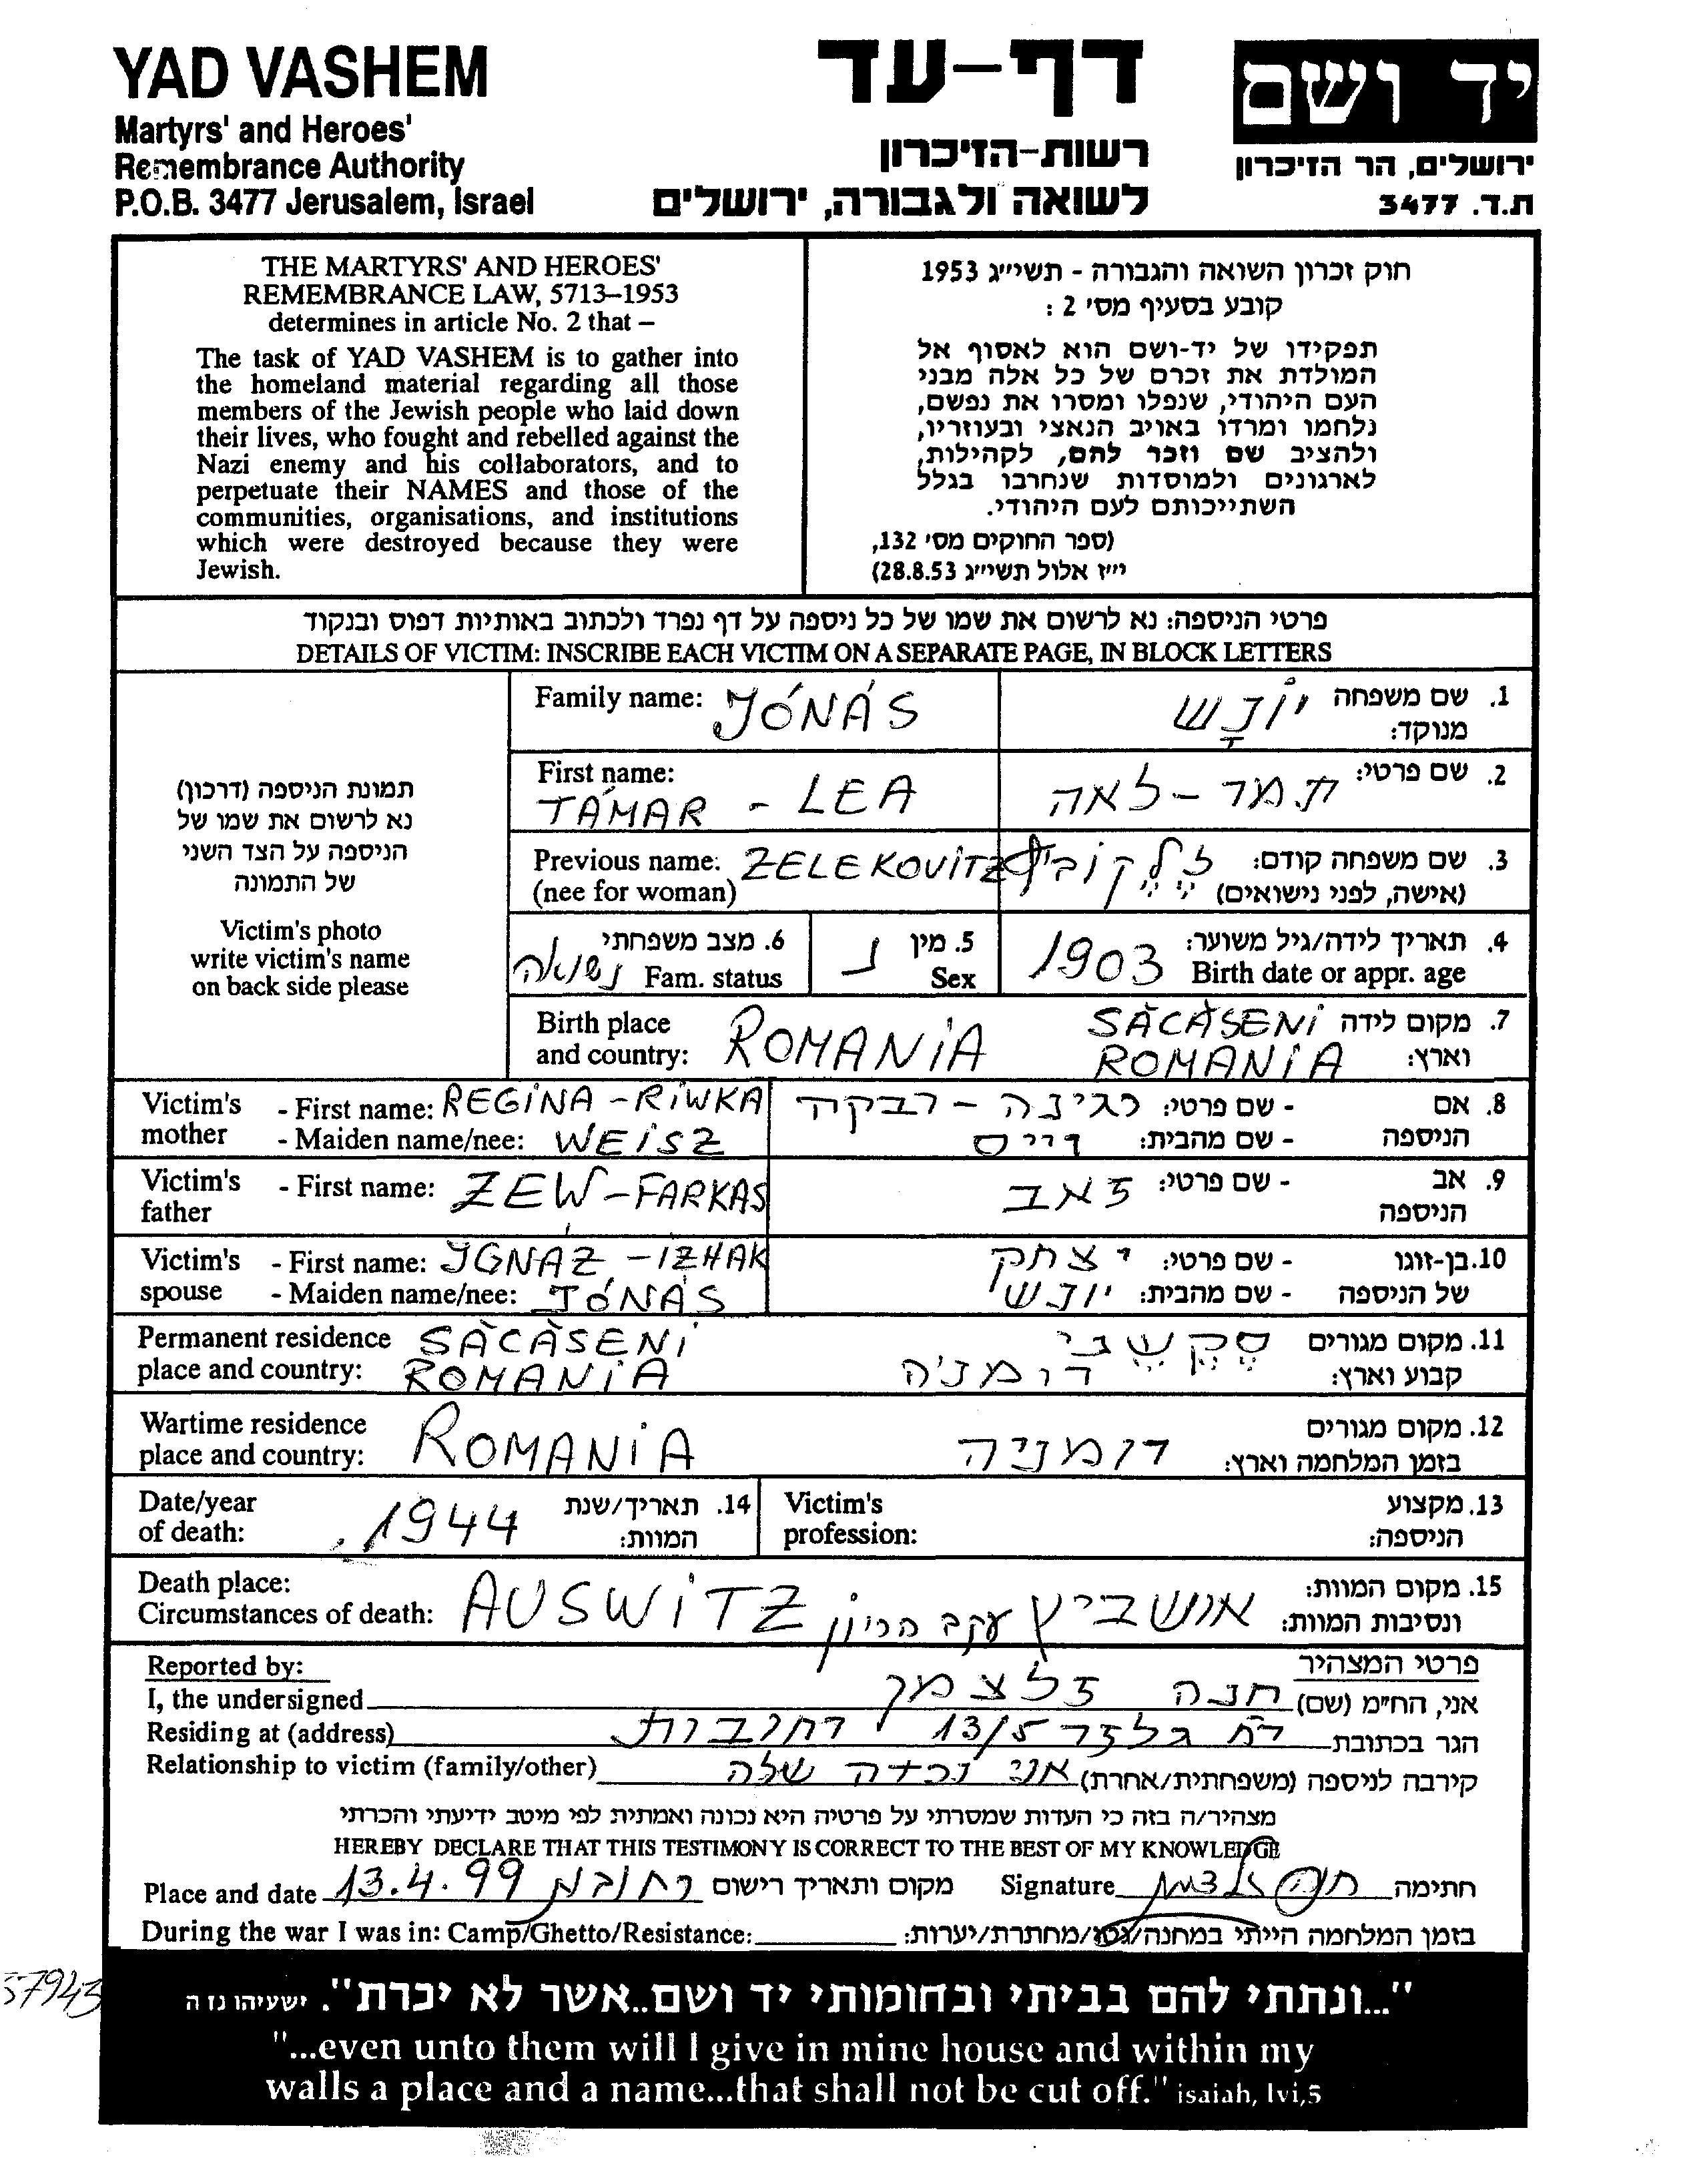 YAD VASHEM
Martyrs' and Heroes'
Remembrance Authority
P.O.B. 3477 Jerusalem, Israel
דף-עד
רשות-הזיכרון
לשואה ולגבורה, ירושלים
יד ושם
ירושלים, הר הזיכרון
ת.ד. 3477
THE MARTYRS' AND HEROES'
REMEMBRANCE LAW, 5713–1953
determines in article No. 2 that –
The task of YAD VASHEM is to gather into
the homeland material regarding all those
members of the Jewish people who laid down
their lives, who fought and rebelled against the
Nazi enemy and his collaborators, and to
perpetuate their NAMES and those of the
communities, organisations, and institutions
which were destroyed because they were
Jewish.
חוק זכרון השואה והגבורה - תשי״ג 1953
קובע בסעיף מס' 2 :
תפקידו של יד-ושם הוא לאסוף אל
המולדת את זכרם של כל אלה מבני
העם היהודי, שנפלו ומסרו את נפשם,
נלחמו ומרדו באויב הנאצי ובעוזריו,
ולהציב שם וזכר להם, לקהילות,
לארגונים ולמוסדות שנחרבו בגלל
השתייכותם לעם היהודי.
(ספר החוקים מס' 132,
י״ז אלול תשי״ג 28.8.53)
פרטי הניספה: נא לרשום את שמו של כל ניספה על דף נפרד ולכתוב באותיות דפוס ובנקוד
DETAILS OF VICTIM: INSCRIBE EACH VICTIM ON A SEPARATE PAGE, IN BLOCK LETTERS
תמונת הניספה (דרכון)
נא לרשום את שמו של
הניספה על הצד השני
של התמונה
Victim's photo
write victim's name
on back side please
Family name: JÓNÁS
1. שם משפחה יוֹנָש
מנוקד:
First name:
TÁMAR - LEA
2. שם פרטי: תמר-לאה
Previous name: ZELEKOVITZ
(nee for woman)
3. שם משפחה קודם:
(אישה, לפני נישואים)
4. תאריך לידה/גיל משוער: 1903
Birth date or appr. age
5. מין נ
Sex
6. מצב משפחתי נשואה
Fam. status
Birth place
and country: ROMANIA
7. מקום לידה SĂCĂSENI
וארץ: ROMANIA
Victim's mother - First name: REGINA - RIWKA
- Maiden name/nee: WEISZ
8. אם הניספה - שם פרטי: רגינה - רבקה
- שם מהבית: וייס
Victim's father - First name: ZEW-FARKAS
9. אב הניספה - שם פרטי: זאב
Victim's spouse - First name: IGNÁZ - IZHAK
- Maiden name/nee: JÓNÁS
10. בן-זוגו של הניספה - שם פרטי: יצחק
- שם מהבית: יונש
Permanent residence SĂCĂSENI
place and country: ROMANIA
11. מקום מגורים סֶקֶשֶני
קבוע וארץ: רומניה
Wartime residence
place and country: ROMANIA
12. מקום מגורים
בזמן המלחמה וארץ: רומניה
Date/year
of death: 1944
14. תאריך/שנת
המוות:
Victim's
profession:
13. מקצוע
הניספה:
Death place:
Circumstances of death: AUSWITZ
15. מקום המוות: אושביץ עקב הריון
ונסיבות המוות:
Reported by:
פרטי המצהיר
I, the undersigned אני, הח״מ (שם) חנה זלצמן
Residing at (address) הגר בכתובת רח גלזר 13/5 רחובות
Relationship to victim (family/other) קירבה לניספה (משפחתית/אחרת) אני נכדה שלה
מצהיר/ה בזה כי העדות שמסרתי על פרטיה היא נכונה ואמתית לפי מיטב ידיעתי והכרתי
HEREBY DECLARE THAT THIS TESTIMONY IS CORRECT TO THE BEST OF MY KNOWLEDGE
Place and date 13.4.99 רחובות מקום ותאריך רישום Signature חנה זלצמן חתימה
During the war I was in: Camp/Ghetto/Resistance: בזמן המלחמה הייתי במחנה/גטו/מחתרת/יערות:
57943
"...ונתתי להם בביתי ובחומותי יד ושם..אשר לא יכרת". ישעיהו נו ה
"...even unto them will I give in mine house and within my
walls a place and a name...that shall not be cut off." isaiah, lvi,5